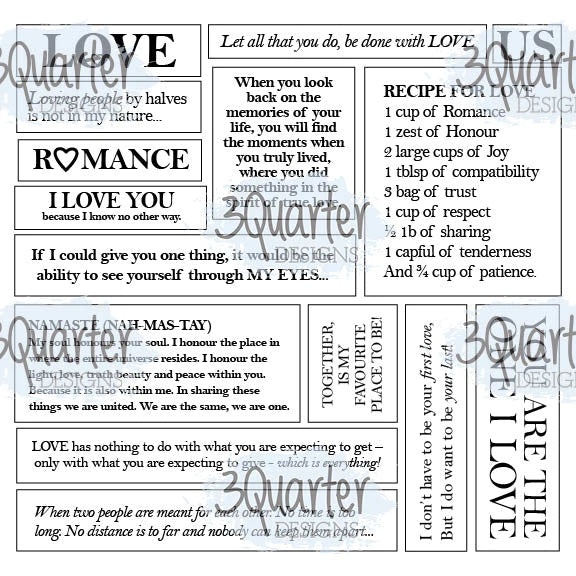 LOVE
Let all that you do, be done with LOVE
US
Loving people by halves
is not in my nature...
When you look
back on the
memories of your
life, you will find
the moments when
you truly lived,
where you did
something in the
spirit of true love.
RECIPE FOR LOVE
1 cup of Romance
1 zest of Honour
2 large cups of Joy
1 tblsp of compatibility
3 bag of trust
1 cup of respect
½ 1b of sharing
1 capful of tenderness
And ¾ cup of patience.
R♡MANCE
I LOVE YOU
because I know no other way.
If I could give you one thing, it would be the
ability to see yourself through MY EYES...
NAMASTE (NAH-MAS-TAY)
My soul honours your soul. I honour the place in
where the entire universe resides. I honour the
light, love, truth beauty and peace within you.
Because it is also within me. In sharing these
things we are united. We are the same, we are one.
TOGETHER,
IS MY
FAVOURITE
PLACE TO BE!
I don't have to be your first love,
But I do want to be your last!
YOU ARE THE
I LOVE
LOVE has nothing to do with what you are expecting to get –
only with what you are expecting to give - which is everything!
When two people are meant for each other. No time is too
long. No distance is to far and nobody can keep them apart...
3Quarter
DESIGNS
3Quarter
DESIGNS
3Quarter
DESIGNS
3Quarter
DESIGNS
3Quarter
DESIGNS
3Quarter
DESIGNS